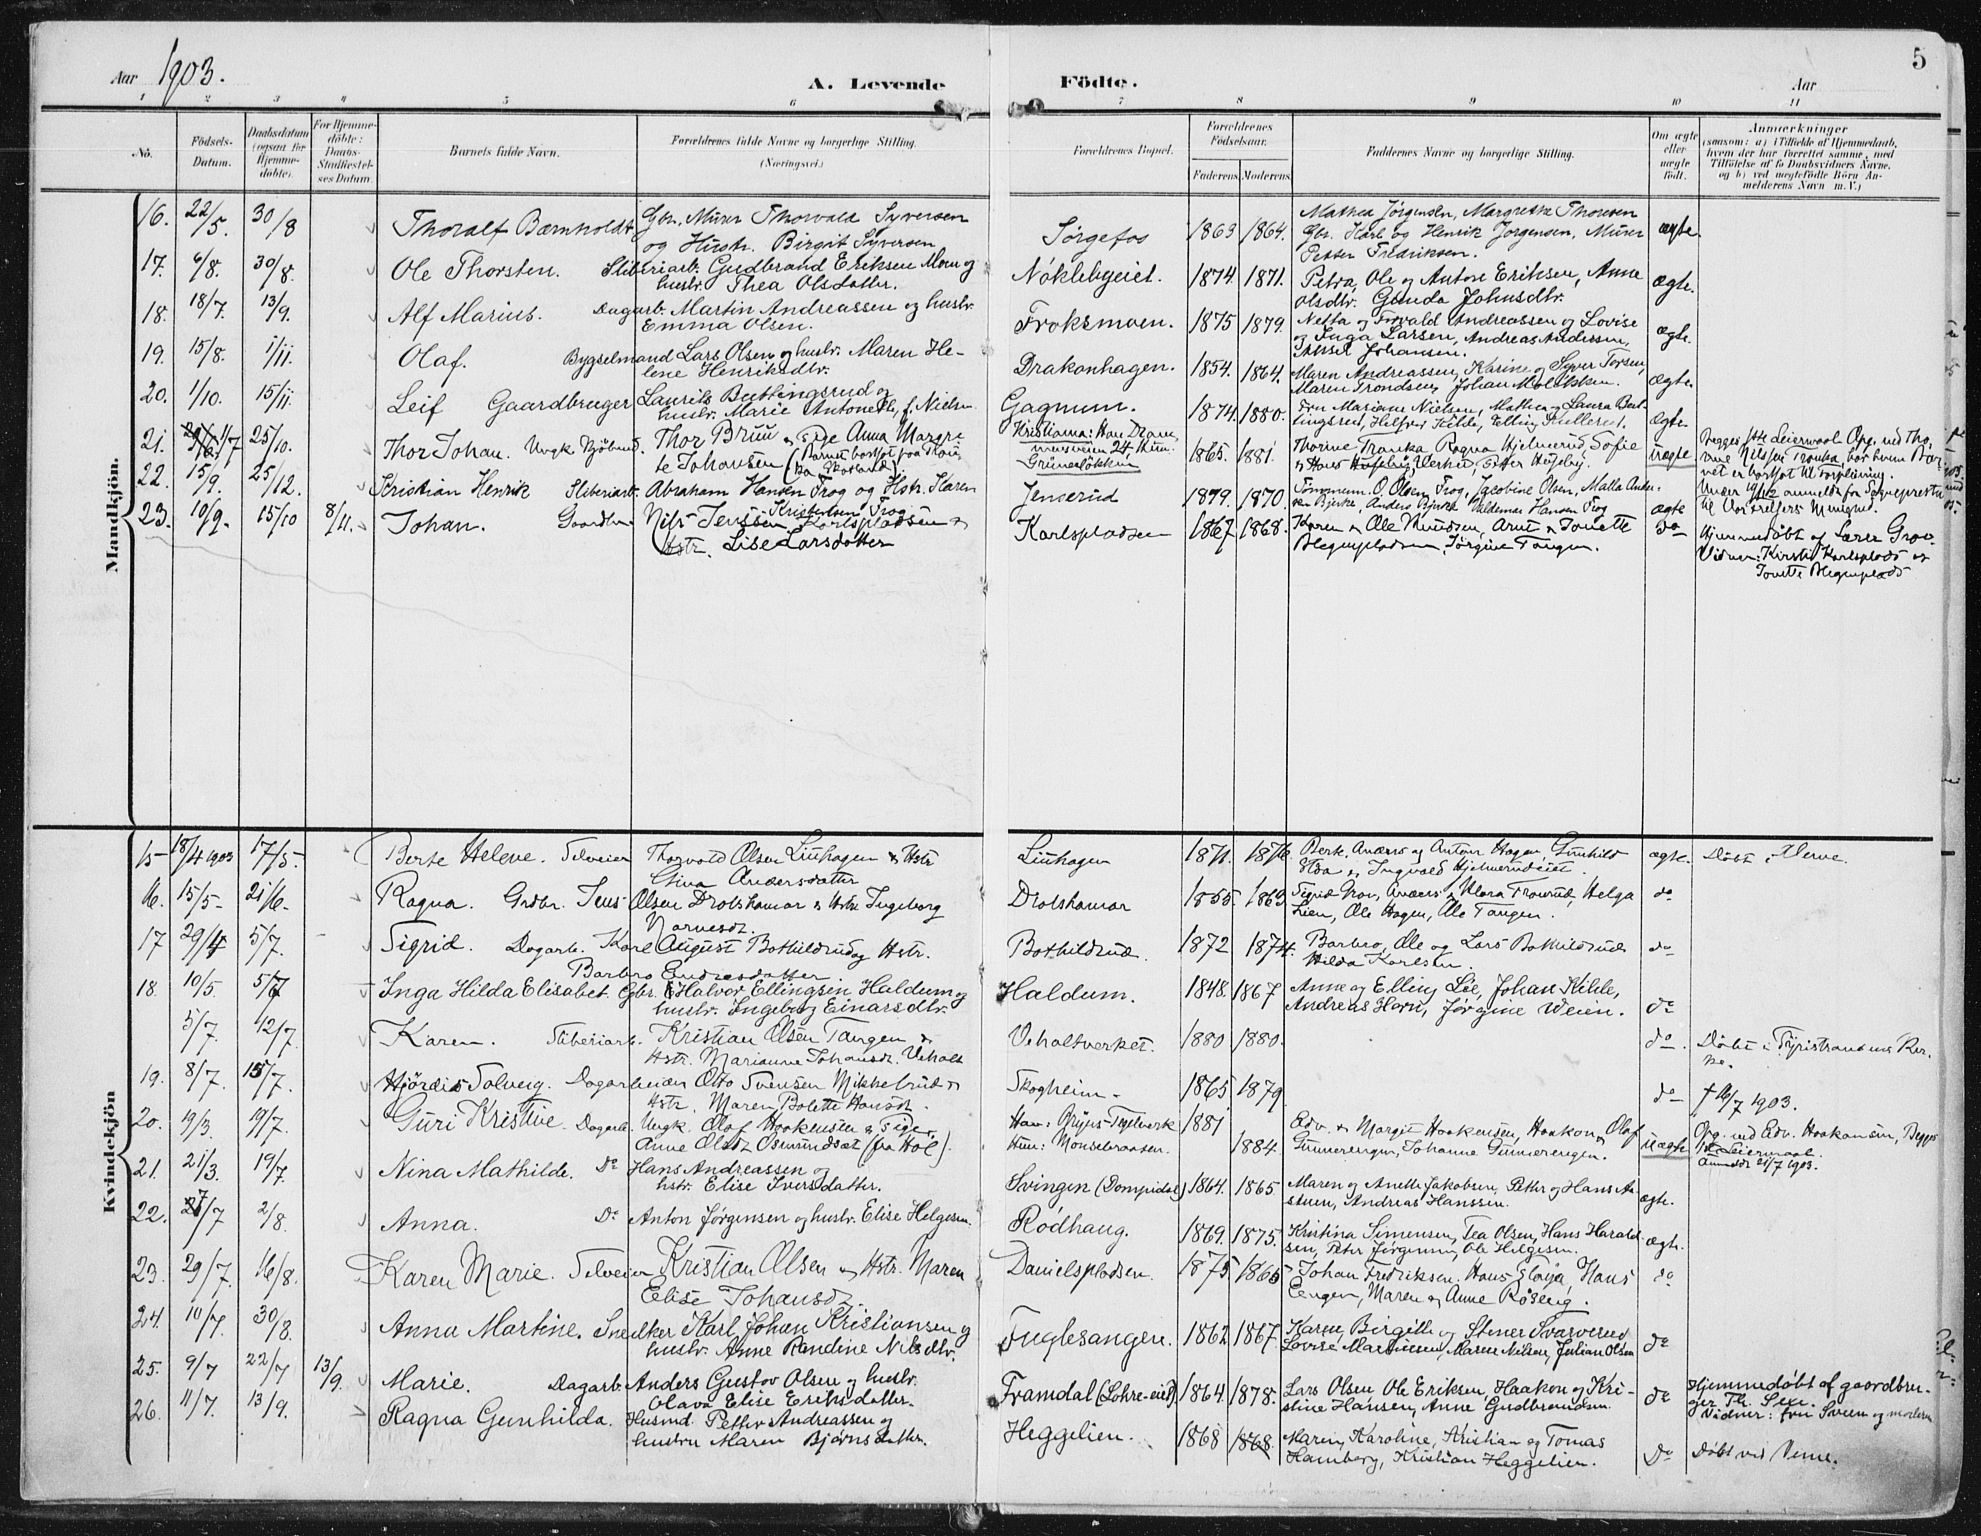 Aar 1903. A. Levende Födte. Aar 5
1 2 3 4 5 6 7 8 9 10 11
No. Födsels-Datum. Daabsdatum (ogsaa for Hjemme-döbte). For Hjemme-döbte: Daabs-Stadfæstel-ses Datum. Barnets fulde Navn. Forældrenes fulde Navne og borgerlige Stilling. (Næringsvei.) Forældrenes Bopæl. Forældrenes Födselsaar. Faderens. Moderens. Faddernes Navne og borgerlige Stilling. Om ægte eller uægte födt. Anmærkninger (saasom: a) i Tilfælde af Hjemmedaab, hvem der har forrettet samme, med Tilföielse af to Daabsvidners Navne, og b) ved uægtefödte Börn An-melderens Navn m. V.)
Mandkjön.
16. 22/5. 30/8 Thoralf Bærnholdt. Gbr. Murer Thorvald Syversen og Hustr. Birgit Syversen Sørgefos 1863 1864. Mathea Jörgensen, Margrethe Thoresen Gbr. Karl og Henrik Jörgensen, Murer Petter Fredriksen. ægte.
17. 6/8. 30/8. Ole Thorsten. Sliberiarb. Gudbrand Eriksen Moen og hustr. Thea Olsdatter. Nöklebyeiet. 1874. 1871. Petra, Ole og Antone Eriksen, Anne Olsdtr. Gunda Johnsdtr. ægte.
18. 18/7. 13/9. Alf Marius. Dagarb. Martin Andreassen og hustr. Emma Olsen. Froksmoen. 1875 1879. Netta og Torvald Andreassen og Lovise og Inga Larsen, Andreas Andersen, Aksel Johansen. ægte.
19. 15/8. 1/11. Olaf. Bygselmand Lars Olsen og hustr. Maren He-lene Henriksdtr. Drakonhagen. 1854. 1864. Maren Andreassen, Karine og Syver Torsen, Maren Trondsen, Johan Molökken. ægte.
20. 1/10. 15/11. Leif Gaardbruger Laurits Buttingsrud og hustr. Marie Antonette, f. Nielsen Gagnum. 1874. 1880. Fru Mariane Nielsen, Mathea og Laura But-tingsrud, Helfred Kilde, Elling Hullerest. ægte.
21. 11/7 25/10. Thor Johan. Ungk. Thor Bruu og Pige Anna Margre-te Johansen (Barnet bortsat fra) Kristiania: Han Dram-mensveien 24, Hun: Grünerløkken 1865. 1881. Thorine Tranka, Ragna Hjelmerud, Sofie og Hans Huseby, Petter Huseby. uægte Begges 1ste Leiermaal. Opg. ved Tho-rine Nilsen Tranka, hos hvem Bar-net er bortsat til Forpleining.
22. 15/9. 25/12. Kristian Henrik Sliberiarb. Abraham Hansen Frog og Hstr. Karen Kristensen Frog Jenserud 1879. 1870. Tömmerm. O. Olsen Frog, Jacobine Olsen, Malla Ander-sen Bjerke, Anders Bjerke, Valdemar Hansen Frog ægte
23. 10/9. 15/10 8/11. Johan. Gaardbr. Nils Jenssen Karlspladsen og Hstr. Lise Larsdatter Karlspladsen 1867 1868. Karen og Ole Knudsen, Arne og Tonette Blegenpladsen, Jörgine Tangen. do Hjemmedøbt af Lærer Grov. Vidner: Kirsti Karlsplads og Tonette Blegenplads
Kvindekjön
15 18/4 1903 17/5. Berte Helene. Selveier Thorvald Olsen Liuhagen og Hstr Gina Andersdatter Liuhagen 1871. 1876. Berk. Anders og Anton Hagen Gunhild Elda og Ingvald Hjelmerudeiet. ægte. Döbt i Verne.
16. 15/5 21/6. Ragna. Grdbr. Jens Olsen Drolshamar og Hstr Ingeborg Narvesdt. Drolshamar 1855 1863 Sigrid Grov, Anders og Klara Fronrud, Helga Lien, Ole Hagen, Ole Tangen. do
17 29/4 5/7. Sigrid. Dagarb. Karl August Bothildrud og Hstr. Barbro Endresdatter Bothildrud. 1872 1874. Barbro, Ole og Lars Bothildrud Hilda Karlsen. do
18. 10/5. 5/7 Inga Hilda Elisabet. Gbr. Halvor Ellingsen Haldum og hustr. Ingeborg Einarsdtr. Haldum. 1848. 1867 Anne og Elling Lie, Johan Kilde, Andreas Horn, Jörgine Weien. do
5/7. 12/7. Karen. Sliberiarb. Kristian Olsen Tangen og Hstr. Marianne Johansdt. Veholt Veholtverket. 1880 1880. do. Döbt i Tyristrandens Kir-ke.
19. 8/7. 15/7. Hjördis Solveig. Dagarbeider Otto Svensen Mikkelrud og Hstr. Maren Bolette Hansdt. Skogheim. 1865 1879 do † 16/7 1903.
20. 19/3. 19/7. Guri Kristine. Dagarb. Ungk. Olaf Haakensen og Pige Anne Olsdt. Osmundsæt (fra Hol). Han: Hun: Monsebraaten. 1881 1884. Edv. og Margit Haakensen, Haakon og Olaf Gunnerengen, Johanne Gunnerengen. uægte Opg. ved Edv. Haakensen, Begges 1ste Leiermaal. Anmeldt 21/7 1903.
21. 21/3. 19/7. Nina Mathilde. Do Hans Andreassen og hstr. Elise Iversdatter. Svingen (Dompidal) 1864. 1865 Maren og Anette Jakobsen, Petter og Hans An-stuen, Andreas Hanssen. ægte.
22. 27/7 2/8. Anna. Do Anton Jörgensen og hustr. Elise Helgesen. Rödhaug. 1869. 1875. Kristina Simensen, Tea Olsen, Hans Harald-sen, Peter Jörgensen, Ole Helgesen. ægte.
23. 29/7. 16/8. Karen Marie. Selveier Kristian Olsen og Hstr. Maren Elise Johansdt. Danielspladsen. 1875 1865 Johan Fredriksen, Hans Fløya, Hans Eengen, Maren og Anne Röseng. do
24. 10/7. 30/8. Anna Martine. Snedker Karl Johan Kristiansen og hustr. Anne Randine Nilsdtr. Fuglesangen. 1862 1867. Karen, Birgitte og Stener Svarverud Lovise Martinsen, Maren Nilsen, Julian Olsen do
25. 9/7 22/7 13/9. Marie. Dagarb. Anders Gustav Olsen og hustr. Olava Elise Eriksdatter. Framdal (Lohre-eiet). 1864. 1878. Lars Olsen, Ole Eriksen, Haakon og Kri-stine Hansen, Anne Gudbrandsen. do Hjemmedöbt af gaardbru-ger Th. Sven. Vidner: fru Sveen og moderen
26. 11/7. 13/9. Ragna Gunhilda. Husmd. Petter Andreassen og hustru Maren Bjørnsdatter. Heggelien. 1868 1868. Maren, Karoline, Kristian og Tomas Hamberg, Kristian Heggelien. Do Döbt ved Verne.